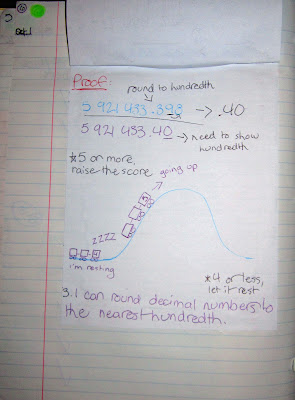 Proof:
round to hundredth
5 921 433.398 → .40
5 921 433.40 → need to show
hundredth
*5 or more,
raise the score
going up
zzzz
i'm resting
*4 or less,
let it rest
3.1 can round decimal numbers to
the nearest hundredth.